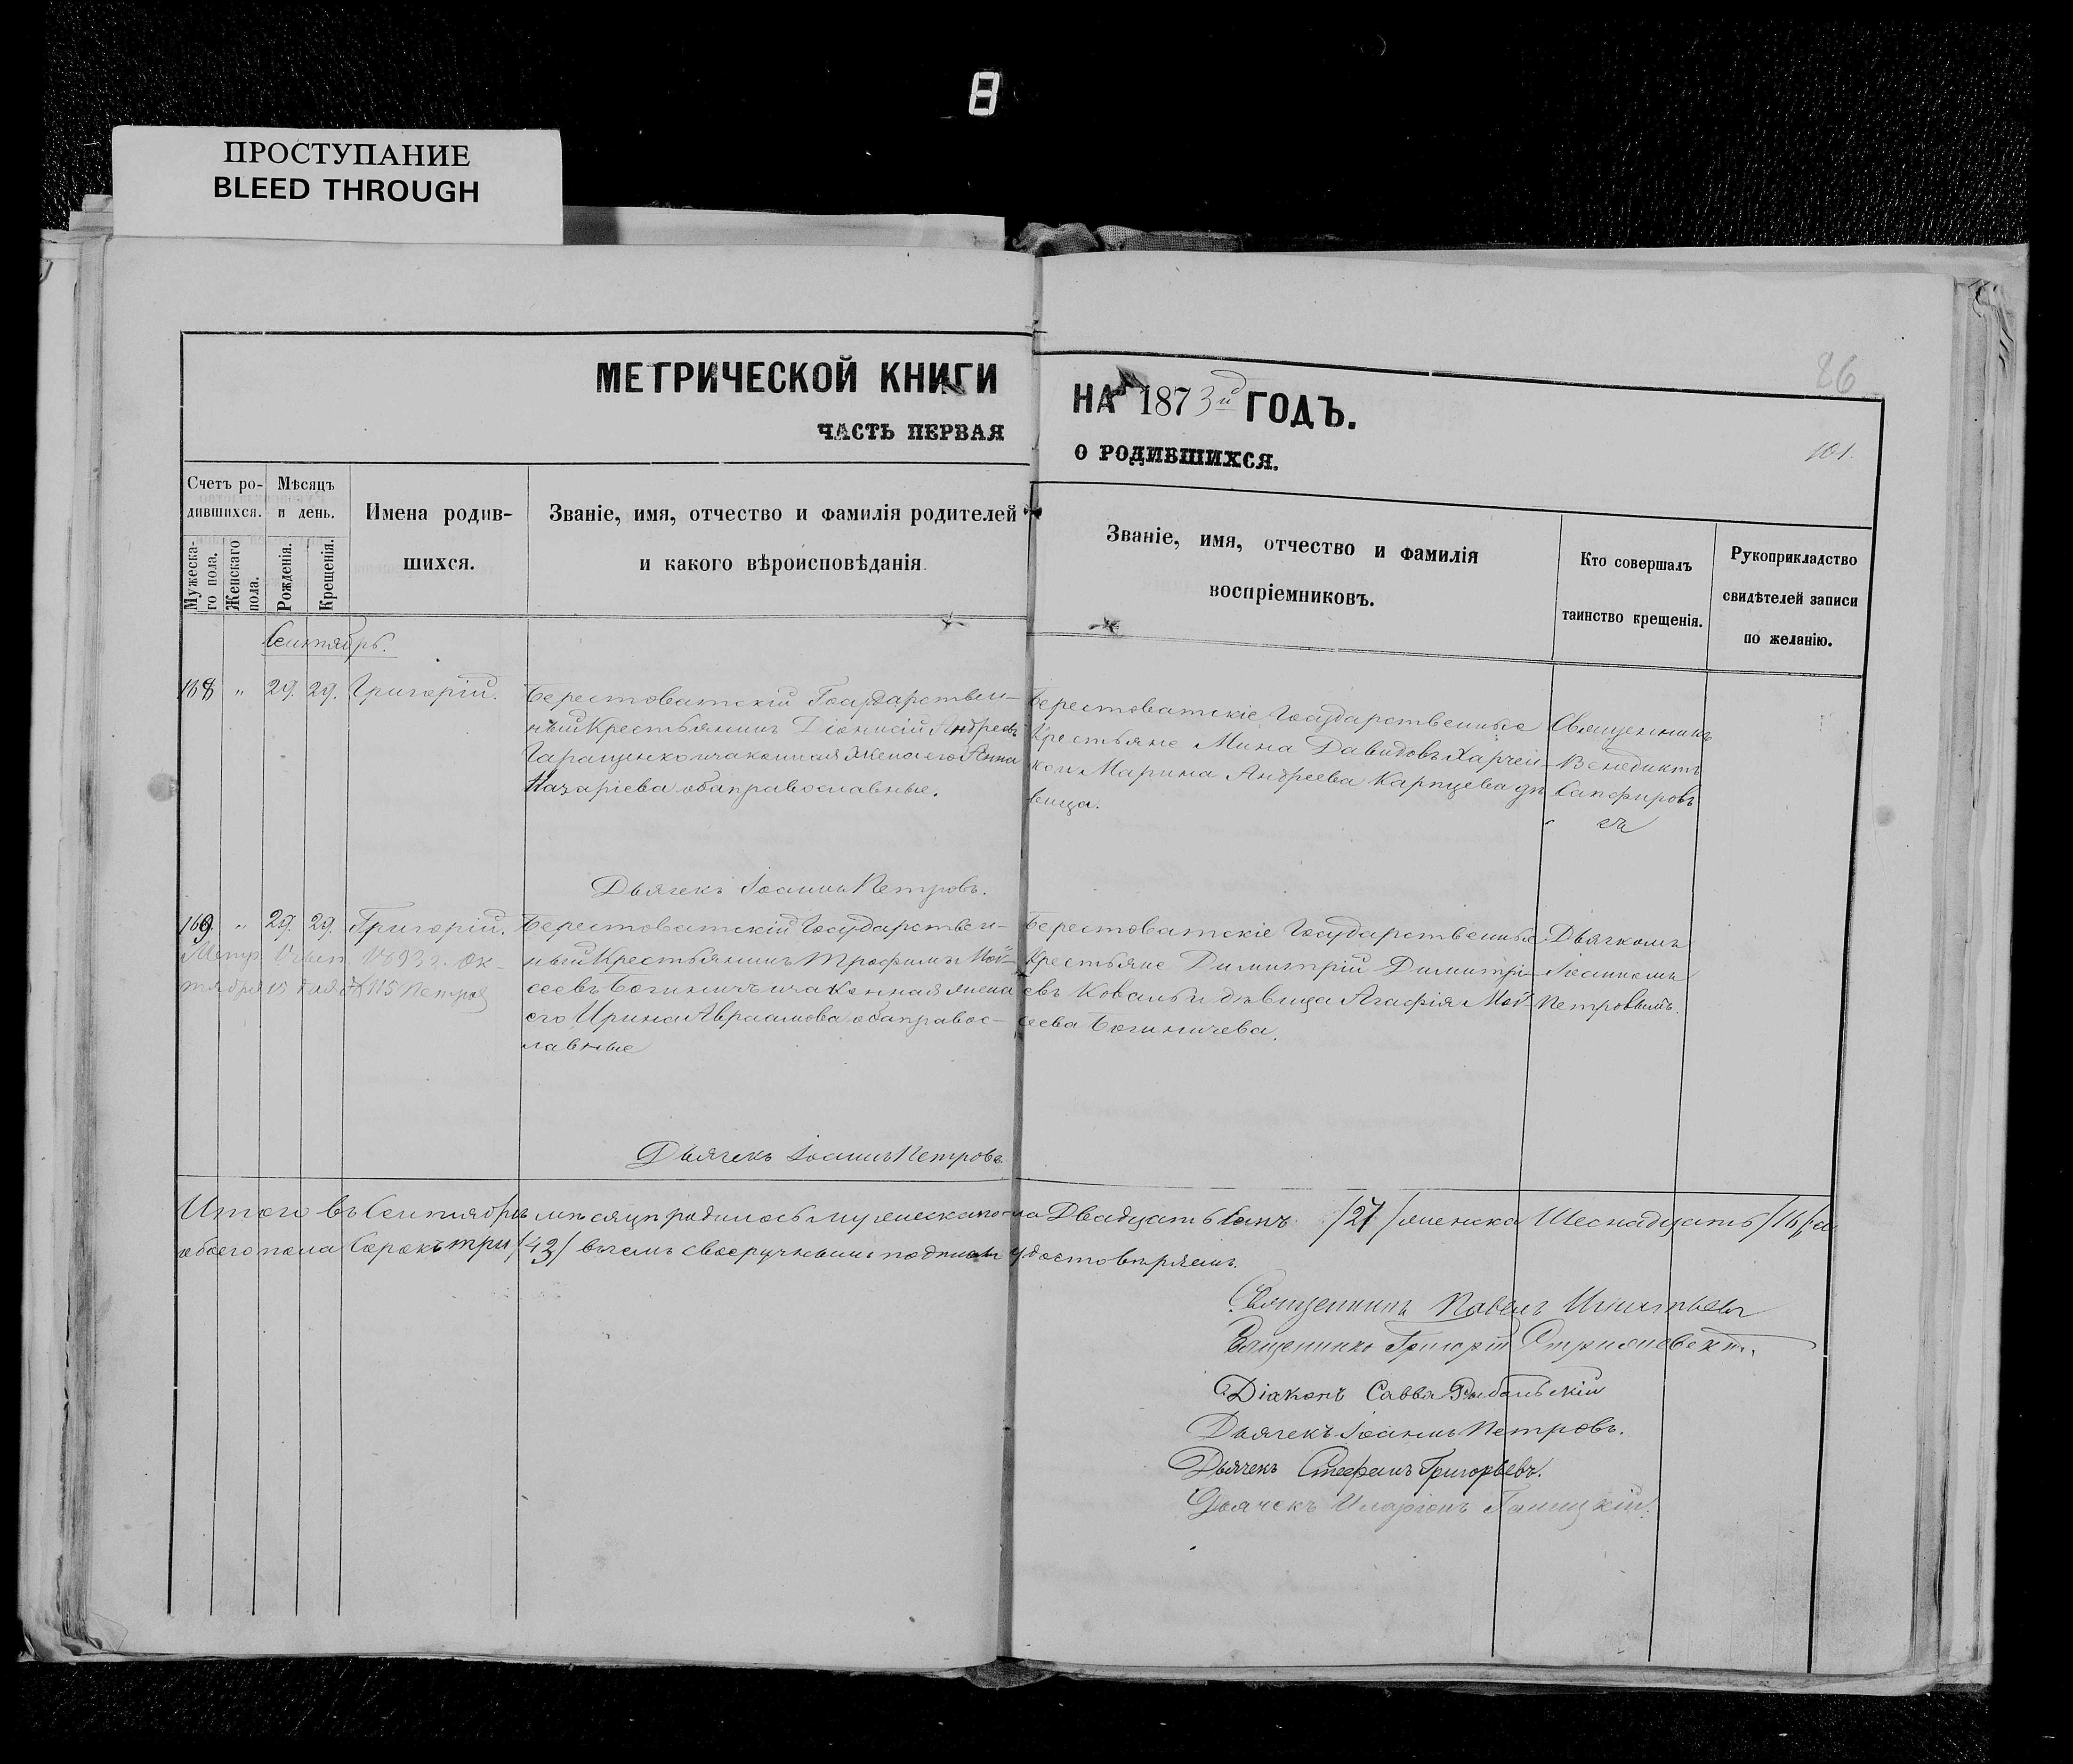 8
ПРОСТУПАНИЕ
BLEED THROUGH
МЕТРИЧЕСКОЙ КНИГИ
НА 1873й ГОДЪ.
86
ЧАСТЬ ПЕРВАЯ
О РОДИВШИХСЯ.
101.
Счетъ ро-
дившихся.
Мужеска-
го пола.
Женскаго
пола.
Мѣсяцъ
и день.
Рожденія.
Крещенія.
Имена родив-
шихся.
Званіе, имя, отчество и фамилія родителей
и какого вѣроисповѣданія.
Званіе, имя, отчество и фамилія
воспріемниковъ.
Кто совершалъ
таинство крещенія.
Рукоприкладство
свидѣтелей записи
по желанію.
Сентябрь.
168 " 29. 29. Григорій.
Берестоватскій Государствен-
ный Крестьянинъ Діонисій Андреевъ
Гаращенко и законная жена его Анна
Назаріева оба православные.
Берестоватскіе Государственные
Крестьяне Мина Давидовъ Харчен-
ко и Марина Андреева Карпцева дѣ
вица.
Священникъ
Венедиктъ
Сапфировъ
Дьячекъ Іоаннъ Петровъ.
169. " 29. 29. Григорій.
Метр. 1932. Ок-
тября 15 дня № 115 Петров
Берестоватскій Государствен-
ный Крестьянинъ Трофимъ Мой-
сеевъ Богиничъ и законная жена
его Ирина Авраамова оба правос-
лавные
Берестоватскіе Государственные
Крестьяне Димитрій Димитрі-
евъ Коваль и дѣвица Агафія Мой-
сеева Богиничева.
Дьячкомъ
Іоанномъ
Петровымъ.
Дьячекъ Іоаннъ Петровъ.
Итого въ Сентябрѣ мѣсяцѣ родилось мужеска пола Двадцать Семь /27/ женска Шеснадцать /16/ а
обоего пола Сорокъ три /43/ въ чемъ своеручнымъ подписомъ удостовѣряемъ.
Священникъ Павелъ Игнатьевъ
Священникъ Григорій
Діаконъ Савва Рыбальскій
Дьячекъ Іоаннъ Петровъ.
Дьячекъ Стефанъ Григорьевъ.
Дьячекъ Иларіонъ Галицкій.